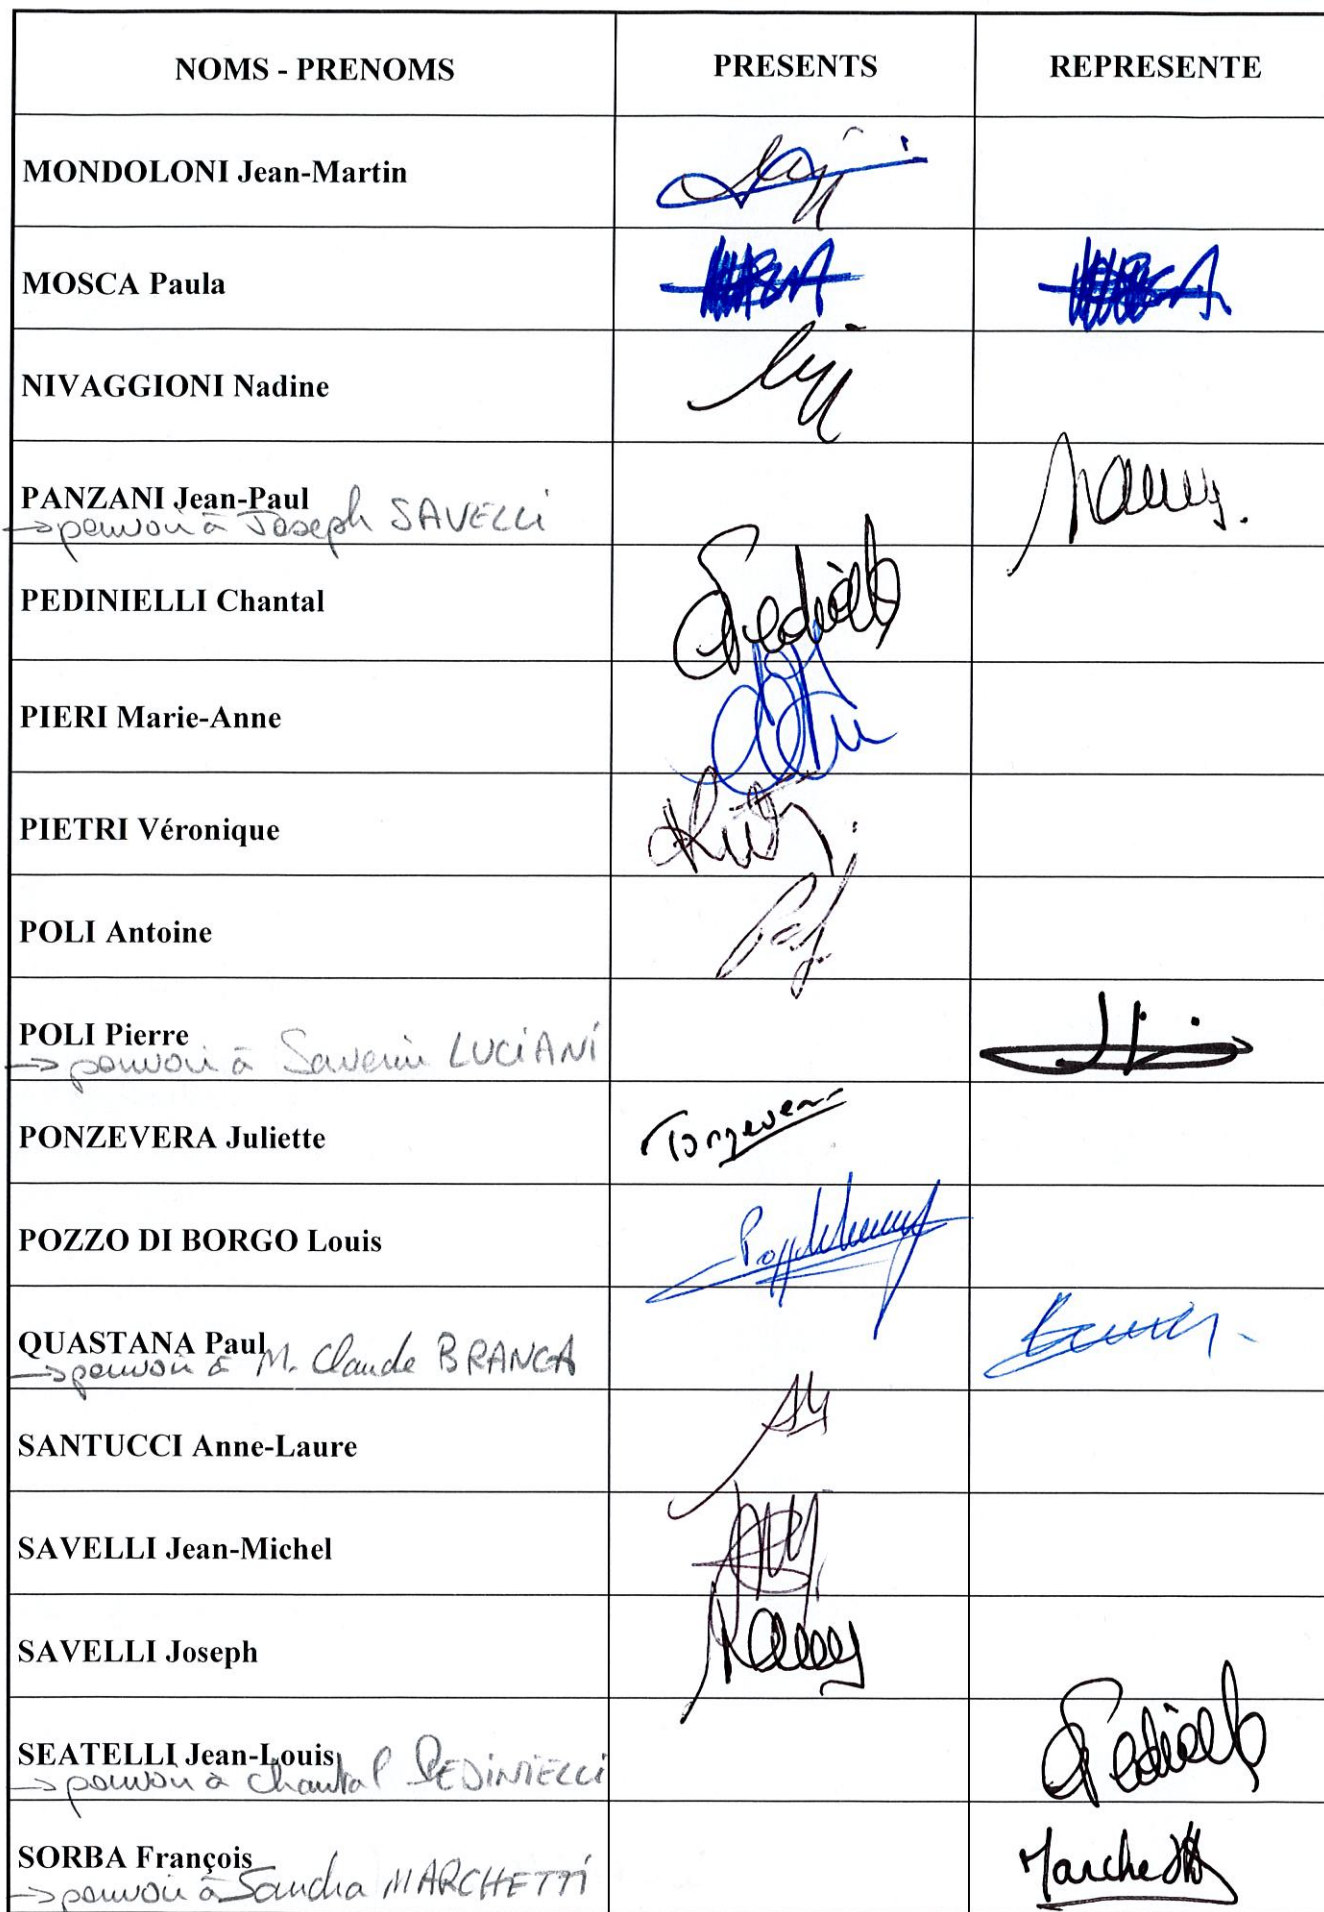 NOMS - PRENOMS PRESENTS REPRESENTE
MONDOLONI Jean-Martin
MOSCA Paula
NIVAGGIONI Nadine
PANZANI Jean-Paul
→ pouvoir à Joseph SAVELLi
PEDINIELLI Chantal
PIERI Marie-Anne
PIETRI Véronique
POLI Antoine
POLI Pierre
→ pouvoir à Saverin LUCiANi
PONZEVERA Juliette
POZZO DI BORGO Louis
QUASTANA Paul
→ pouvoir à M. Claude BRANCA
SANTUCCI Anne-Laure
SAVELLI Jean-Michel
SAVELLI Joseph
SEATELLI Jean-Louis
→ pouvoir à Chantal PEDiNiELLi
SORBA François
→ pouvoir à Sandra MARCHETTi Marchetti